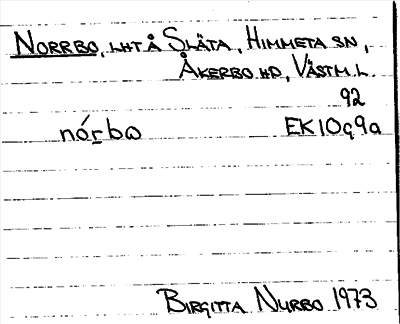 NORRBO, LHT Å SLÄTA, HIMMETA SN,
ÅKERBO HD, VÄSTM. L.
92
nórbo EK10g9a
BIRGITTA NURBO 1973